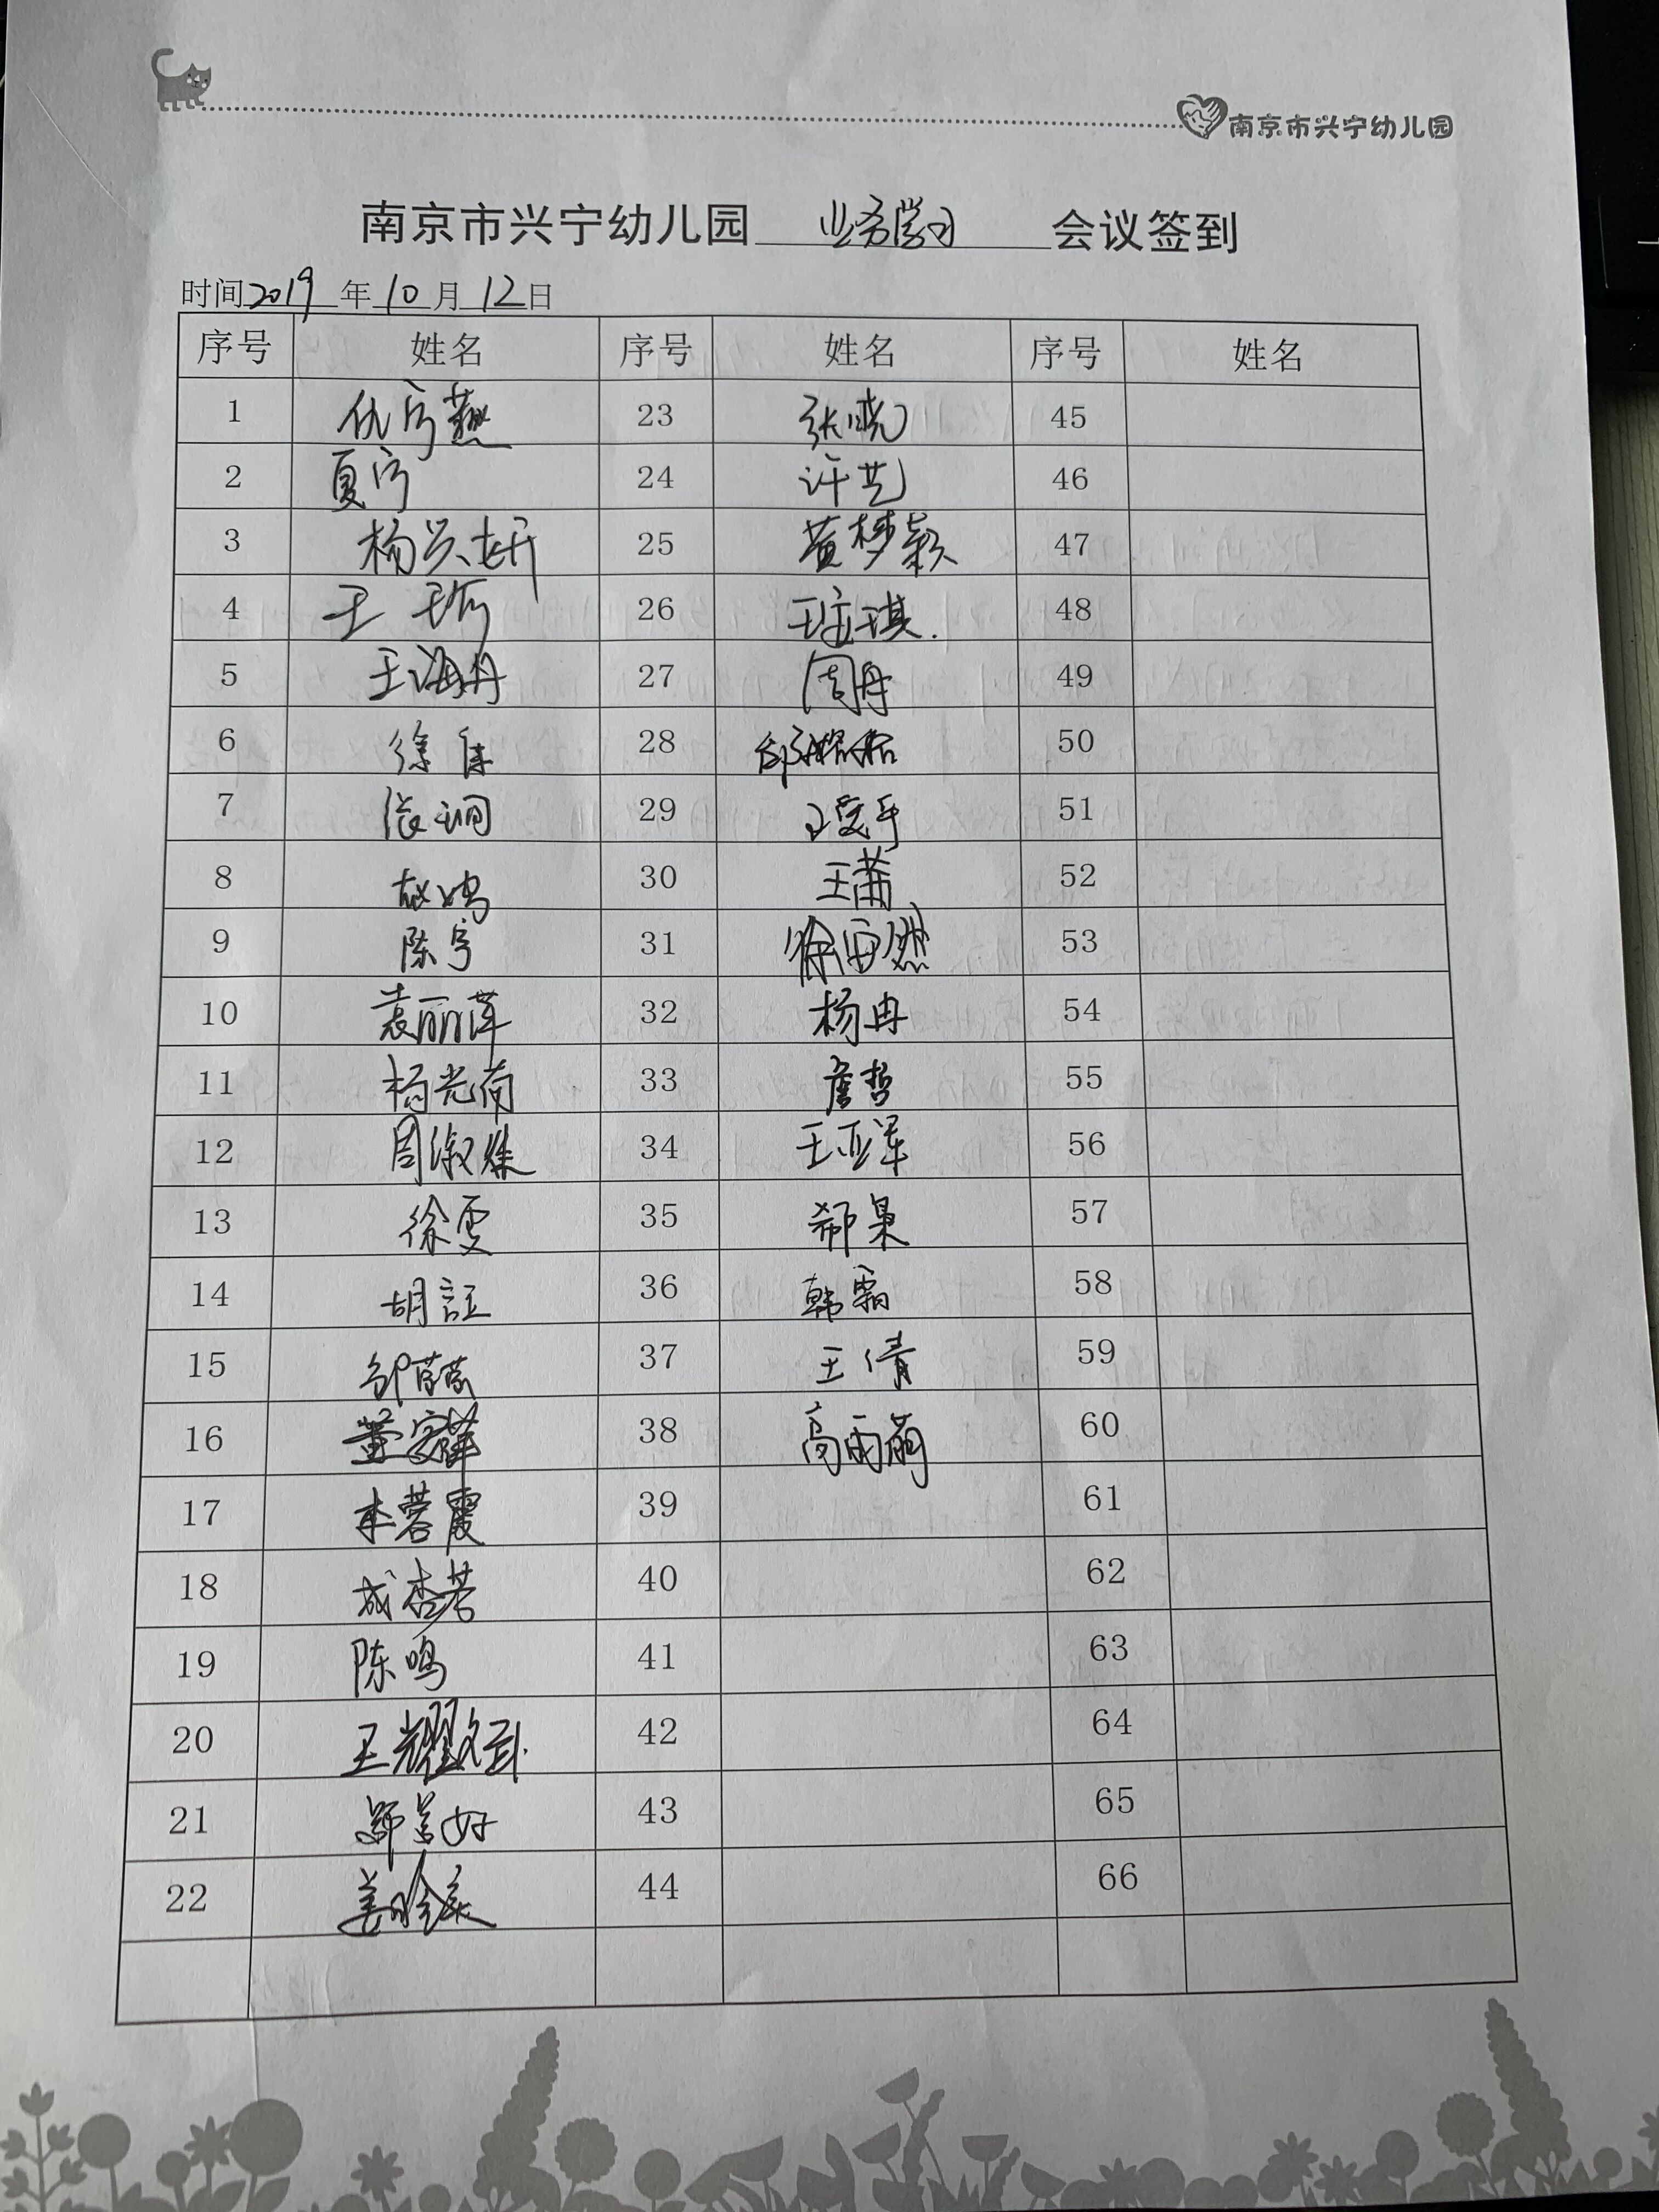 南京市兴宁幼儿园
南京市兴宁幼儿园 业务学习 会议签到
时间 2019 年 10 月 12 日
序号 姓名 序号 姓名 序号 姓名
1 仇宇燕 23 张晓 45
2 夏宇 24 许艺 46
3 杨兴妍 25 黄梦颖 47
4 王 26 琪 48
5 王海丹 27 周丹 49
6 徐佳 28 50
7 张 29 王雯 51
8 赵 30 王萧 52
9 陈宇 31 徐安然 53
10 袁丽萍 32 杨冉 54
11 杨光荷 33 詹哲 55
12 周淑 34 王亚军 56
13 徐雯 35 郗枭 57
14 胡 36 韩霜 58
15 邹 37 王倩 59
16 董 38 高雨萌 60
17 李蓉霞 39 61
18 成杏芳 40 62
19 陈鸣 41 63
20 王耀 42 64
21 好 43 65
22 姜 44 66